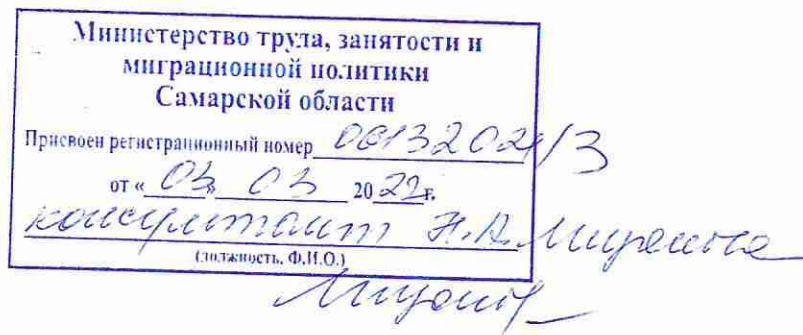 Министерство труда, занятости и
миграционной политики
Самарской области
Присвоен регистрационный номер 00132021/3
от « 03 » 03 2022г.
консультант Н.А.
(должность, Ф.И.О.)